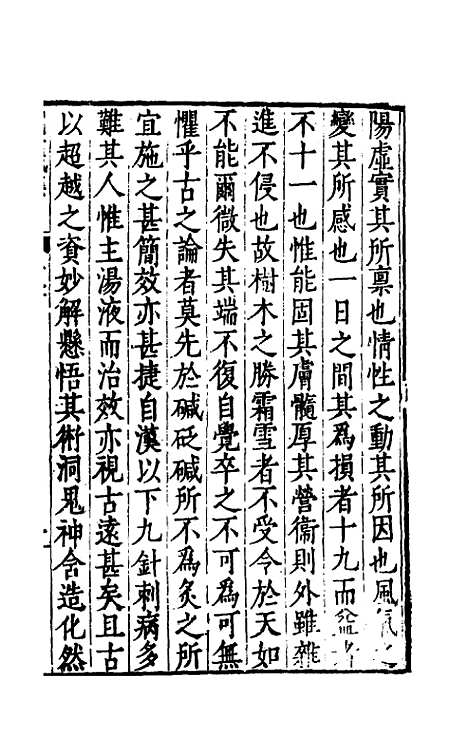 陽虛實其所禀也情性之動其所因也風氣之
變其所感也一日之間其爲損者十九而益者
不十一也惟能固其膚髓厚其營衞則外雖雜
進不侵也故樹木之勝霜雪者不受令於天如
不能爾微失其端不復自覺卒之不可爲可無
懼乎古之論者莫先於碱砭碱所不爲灸之所
宜施之甚簡效亦甚捷自漢以下九針刺病多
難其人惟主湯液而治效亦視古遠甚矣且古
以超越之資妙解懸悟其術洞鬼神含造化然